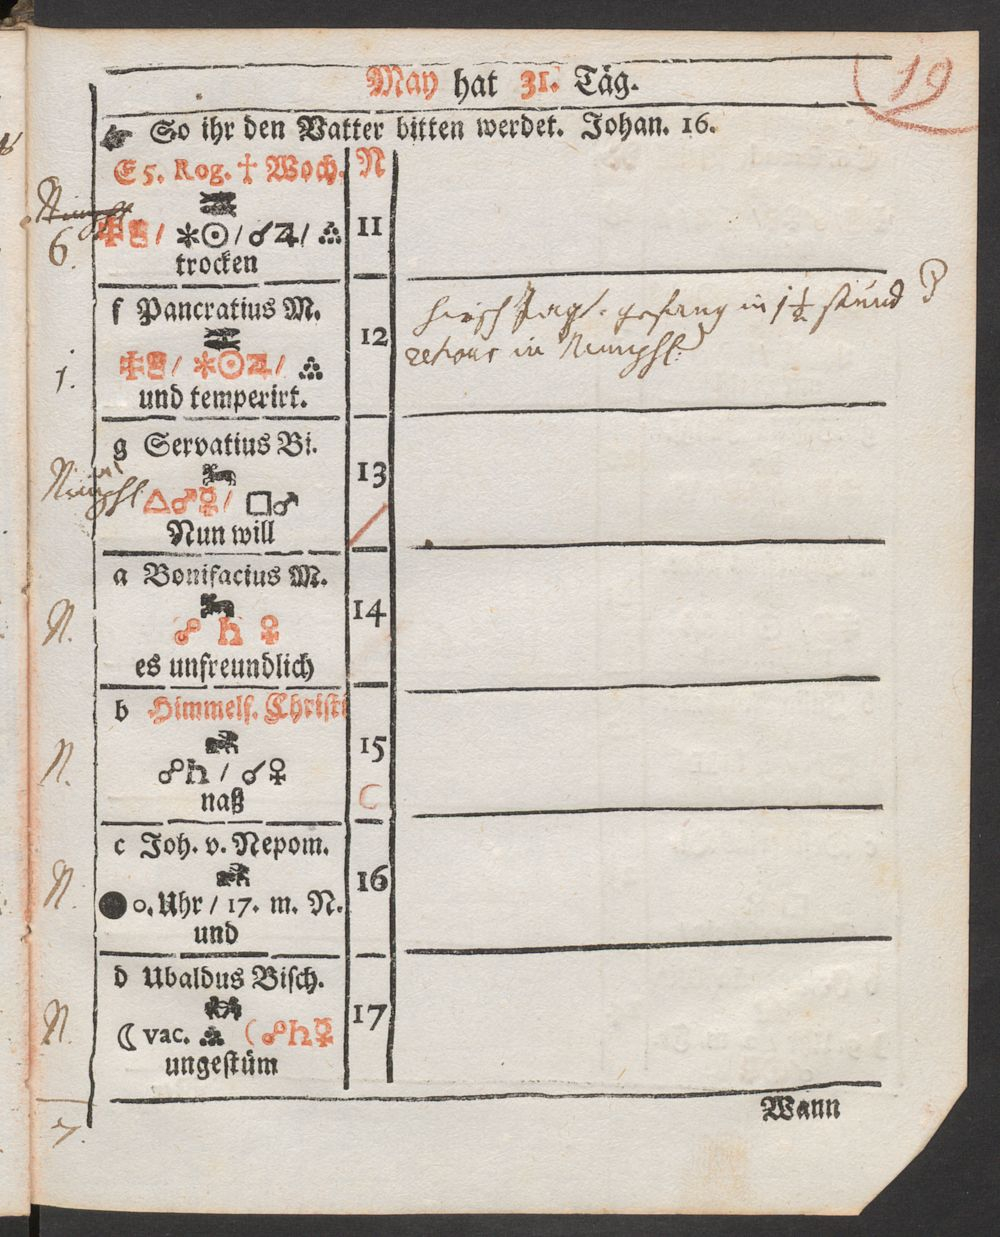 May hat 31. Täg.
19
So ihr den Vatter bitten werdet. Johan. 16.
E 5. Rog. † Woch. N
6.
✱☉ / ☌♃ / 11
trocken
f Pancratius M.
12
Hirsch Jagt. gefang in 1½ stund
retour in Nimpf.
1.
✱☉♃ /
und temperirt.
g Servatius Bi.
13
△♂☿ / □♂
Nun will
a Bonifacius M.
14
N.
☍ ♄ ♀
es unfreundlich
b Himmelf. Christi
15
N.
☍♄ / ☌♀
naß
C
c Joh. v. Nepom.
16
N.
● 0. Uhr / 17. m. N.
und
d Ubaldus Bisch.
17
N.
☾ vac. ( ☍♄☿
ungestüm
Wann
7.